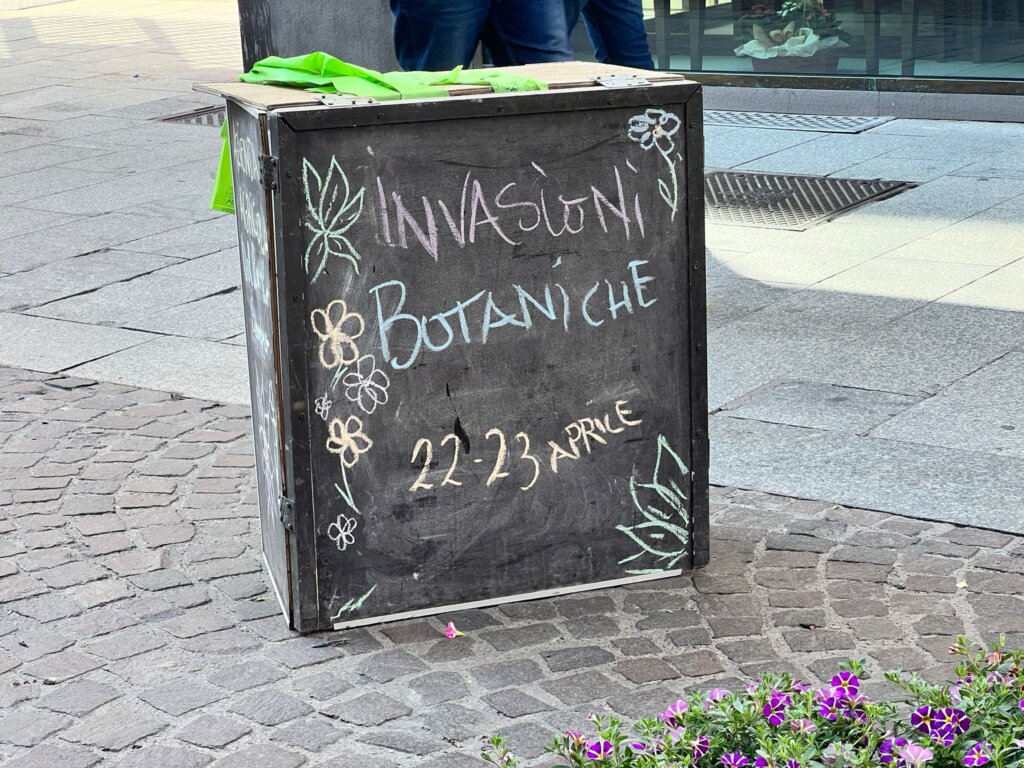 INVASIONI
BOTANICHE
22-23 APRILE